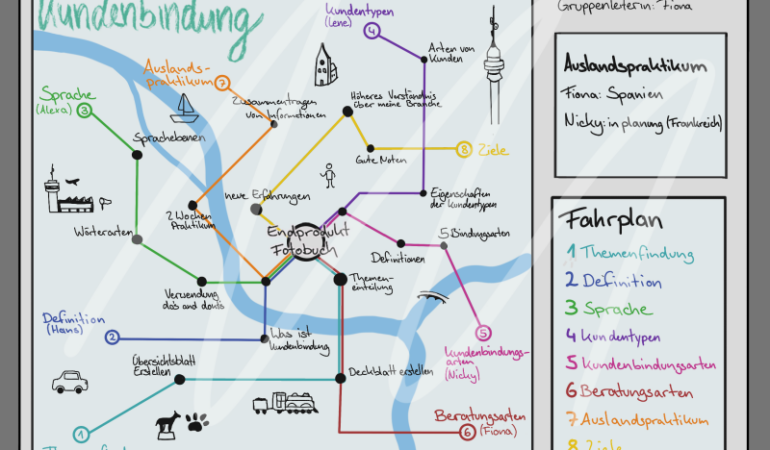 Kundenbindung
Kundentypen
(Lene)
4
Arten von
Kunden
Auslands-
praktikum
7
Sprache
(Alexa)
3
Sprachebenen
Zusammentragen
von Informationen
Höheres Verständnis
über meine Branche
Gute Noten
8
Ziele
neue Erfahrungen
Eigenschaften
der Kundentypen
2 Wochen
Praktikum
Wörterarten
Endprodukt
Fotobuch
Definitionen
5 Bindungsarten
Verwendung
do's and dont's
Themen-
einteilung
Definition
(Hans)
2
Was ist
Kundenbindung
Übersichtsblatt
Erstellen
Deckblatt erstellen
5
Kundenbindungs-
arten
(Nicky)
Beratungsarten
6
(Fiona)
1
Gruppenleiterin: Fiona
Auslandspraktikum
Fiona: Spanien
Nicky: in planung (Frankreich)
Fahrplan
1 Themenfindung
2 Definition
3 Sprache
4 Kundentypen
5 Kundenbindungsarten
6 Beratungsarten
7 Auslandspraktikum
8 Ziele